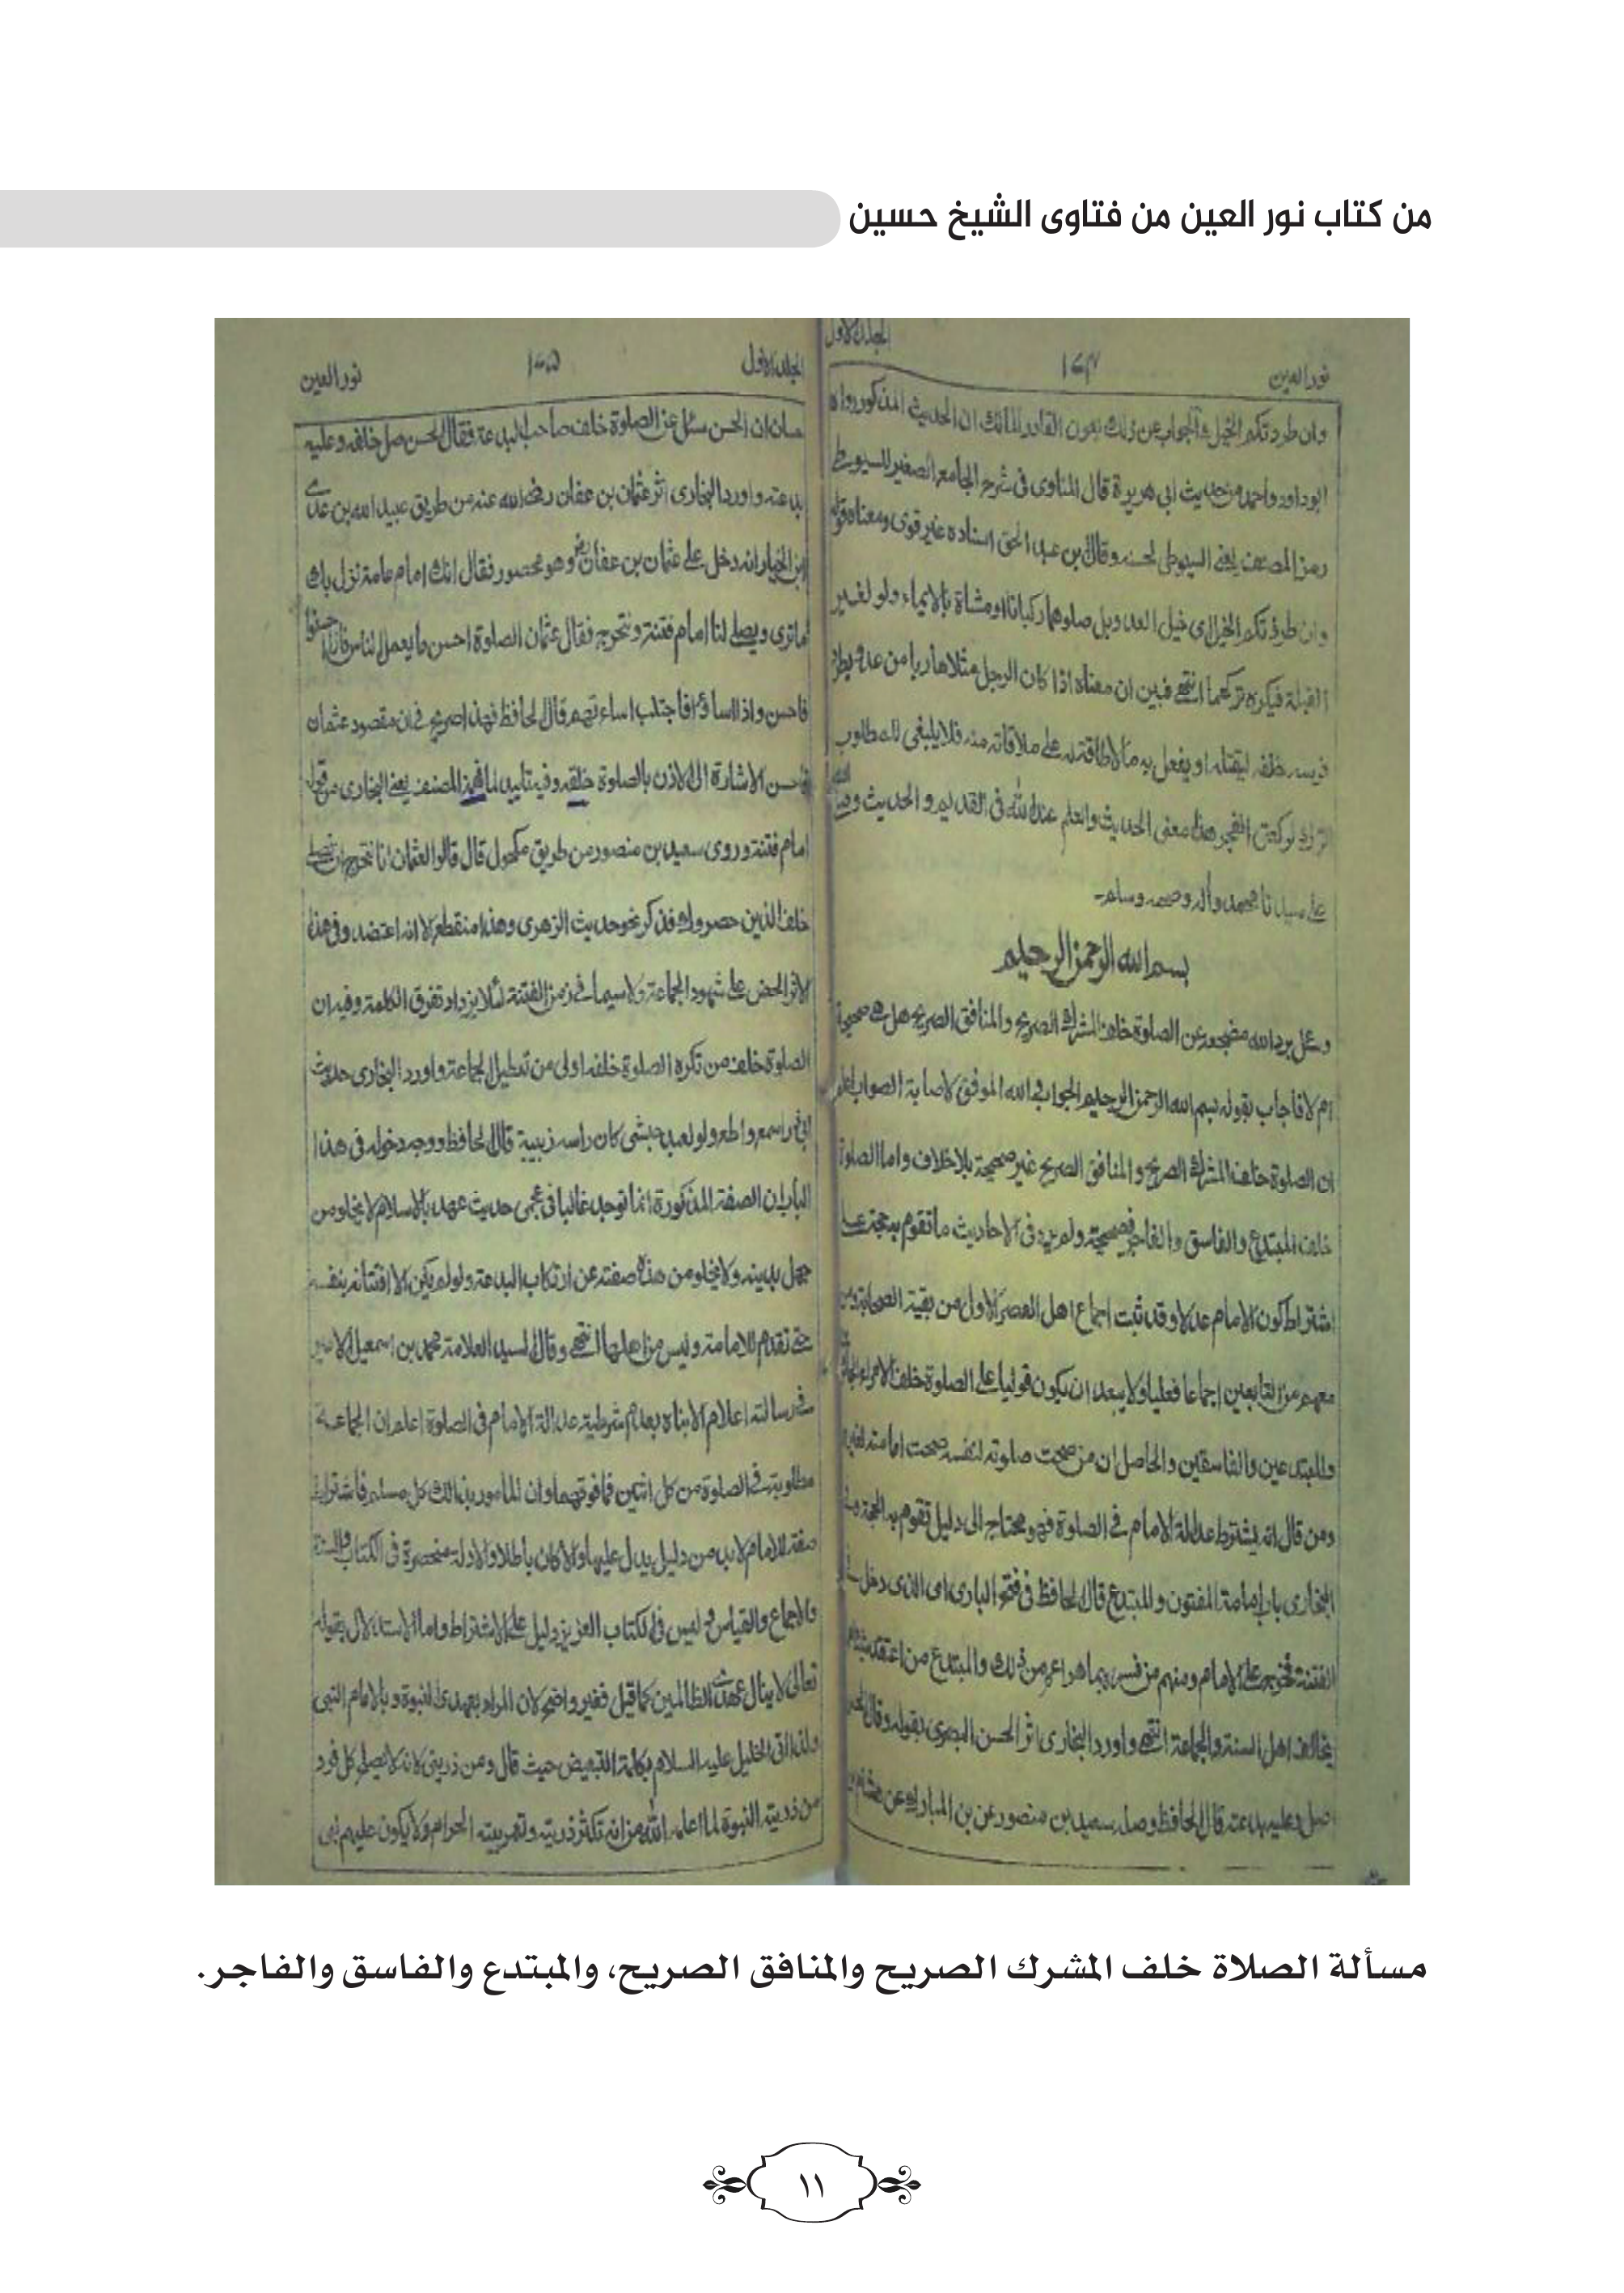 من كتاب نور العين من فتاوى الشيخ حسين
المجلد الاول
نور العين
وان طردتكم الخيل والجواب عن ذلك بعون القادر المالك ان الحديث المذكور رواه
ابوداود واحمد من حديث ابى هريرة قال المناوى فى شرح الجامع الصغير للسيوطى
رمز المصنف يعنى السيوطى لحسنه وقال بن عبد الحق اسناده غير قوى ومعناه قوله
وان طردتكم الخيل اى خيل العدو بل صلوهما ركبانا او مشاة بالايماء ولو لغير
القبلة فيكره تركهما انتهى فبين ان معناه اذا كان الرجل مثلا هاربا من عدو
خلفه ليقتله او يفعل به مالا طاقة له على ملاقاته منه فلا ينبغى للمطلوب
لركعتى الفجر هذا معنى الحديث والعلم عند الله فى القديم والحديث وصلى الله
على سيدنا محمد واله وصحبه وسلم۔
بسم الله الرحمن الرحيم
وسئل برد الله مضجعه عن الصلوة خلف المشرك الصريح والمنافق الصريح هل هى صحيحة
ام لا فاجاب بقوله بسم الله الرحمن الرحيم الجواب والله الموفق لاصابة الصواب اعلم
ان الصلوة خلف المشرك الصريح والمنافق الصريح غير صحيحة بلا خلاف واما الصلوة
خلف المبتدع والفاسق والفاجر فصحيحة ولم يرد فى الاحاديث ما تقوم به حجة على
اشتراط كون الامام عدلا وقد ثبت اجماع اهل العصر الاول من بقية الصحابة ومن
معهم من التابعين اجماعا فعليا ولا يبعد ان يكون قوليا على الصلوة خلف الامراء
والمبتدعين والفاسقين والحاصل ان من صحت صلوته لنفسه صحت امامته لغيره
ومن قال انه يشترط عدالة الامام فى الصلوة فهو محتاج الى دليل تقوم به الحجة
البخارى باب امامة المفتون والمبتدع قال الحافظ فى فتح البارى اى الذى دخل فى
الفتنة فخرج على الامام ومنهم من فسره بما هو اعم من ذلك والمبتدع من اعتقد شيئا
يخالف اهل السنة والجماعة انتهى واورد البخارى اثر الحسن البصرى بقوله وقال الحسن
صل وعليه بدعته قال الحافظ وصله سعيد بن منصور عن بن المبارك عن هشام بن
المجلد الاول
١٢٥
نور العين
حسان ان الحسن سئل عن الصلوة خلف صاحب البدعة فقال الحسن صل خلفه وعليه
بدعته واورد البخارى اثر عثمان بن عفان رضى الله عنه من طريق عبيد الله بن عدى
ابن الخيار انه دخل على عثمان بن عفان رض وهو محصور فقال انك امام عامة نزل بك
ما ترى ويصلى لنا امام فتنة ونتحرج فقال عثمان الصلوة احسن ما يعمل الناس فاذا احسنوا
فاحسن واذا اساؤا فاجتنب اساءتهم قال الحافظ فهذا صريح فى ان مقصود عثمان
فاحسن الاشارة الى الاذن بالصلوة خلفه وفيه تاييد لما فهمه المصنف يعنى البخارى من قوله
امام فتنة وروى سعيد بن منصور من طريق مكحول قال قالوا لعثمان انا نتحرج ان نصلى
خلف الذين حصروك فذكر نحو حديث الزهرى وهذا منقطع الا انه اعتضد وفى هذا
الاثر الحض على شهود الجماعة ولا سيما فى زمن الفتنة لئلا يزداد تفرق الكلمة وفيه ان
الصلوة خلف من تكره الصلوة خلفه اولى من تعطيل الجماعة واورد البخارى حديث
ابى ذر اسمع واطع ولو لعبد حبشى كان راسه زبيبة قال الحافظ ووجه دخوله فى هذا
الباب ان الصفة المذكورة انما توجد غالبا فى عجمى حديث عهد بالاسلام لا يخلو من
جهل بدينه ولا يخلو من هذه صفته عن ارتكاب البدعة ولو لم يكن الا افتتانه بنفسه
حتى تقدم للامامة وليس من اهلها انتهى وقال السيد العلامة محمد بن اسمعيل الامير
فى رسالته اعلام الانباه بعدم شرطية عدالة الامام فى الصلوة اعلم ان الجماعة
مطلوبة فى الصلوة من كل اثنين فما فوقهما وان المامور بذلك كل مسلم فاشتراط
صفة للامام لا بد من دليل يدل عليها والا كان باطلا والادلة منحصرة فى الكتاب والسنة
والاجماع والقياس وليس فى الكتاب العزيز دليل على الاشتراط واما الاستدلال بقوله
تعالى لا ينال عهدى الظالمين كما قيل فغير واضح لان المراد بعهدى النبوة وبالامام النبى
ولذا اتى الخليل عليه السلام بكلمة التبعيض حيث قال ومن ذريتى لانه لا يصلح كل فرد
من ذريته النبوة لما اعلمه الله من انه تكثر ذريته وتعربيته الحرام ولا يكون عليهم نبى
مسألة الصلاة خلف المشرك الصريح والمنافق الصريح، والمبتدع والفاسق والفاجر.
١١